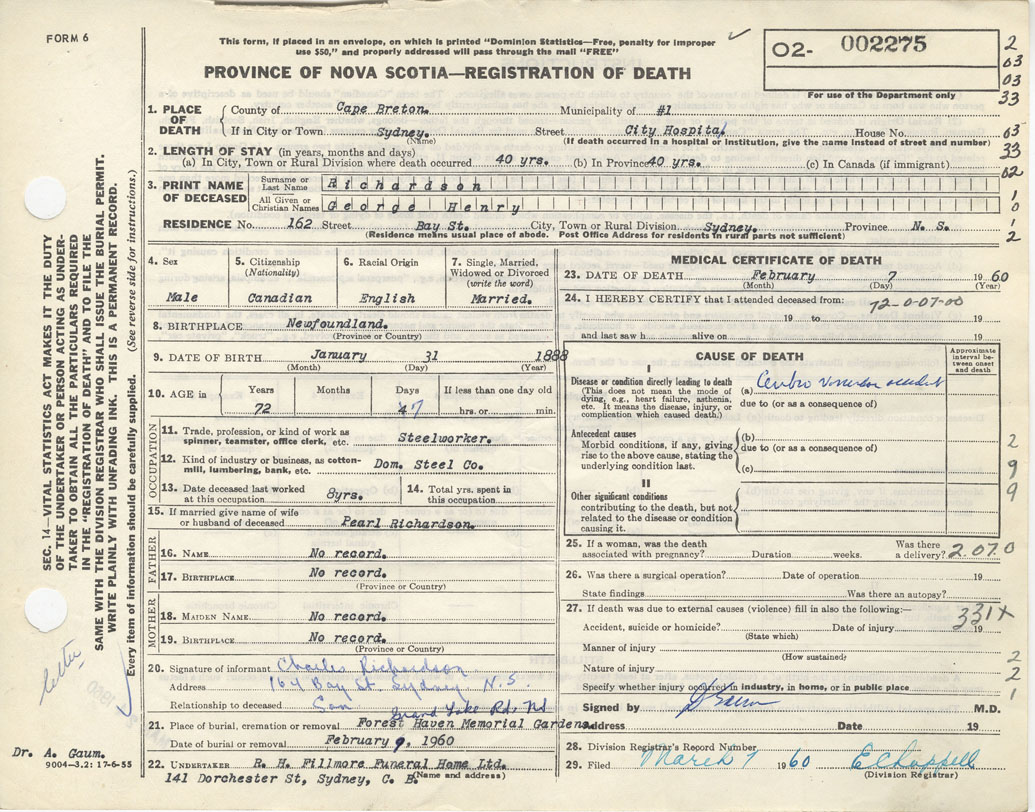 FORM 6
This form, if placed in an envelope, on which is printed "Dominion Statistics—Free, penalty for improper
use $50," and properly addressed will pass through the mail "FREE"
02- 002275
PROVINCE OF NOVA SCOTIA—REGISTRATION OF DEATH
For use of the Department only
2
03
03
33
1. PLACE OF DEATH
County of Cape Breton. Municipality of #1
If in City or Town Sydney. Street City Hospital House No.
(Name) (If death occurred in a hospital or institution, give the name instead of street and number)
63
33
02
2. LENGTH OF STAY (in years, months and days)
(a) In City, Town or Rural Division where death occurred 40 yrs. (b) In Province 40 yrs. (c) In Canada (if immigrant)
3. PRINT NAME OF DECEASED
Surname or Last Name Richardson
All Given or Christian Names George Henry
1
0
1
2
RESIDENCE No. 162 Street Bay St. City, Town or Rural Division Sydney. Province N. S.
(Residence means usual place of abode. Post Office Address for residents in rural parts not sufficient)
4. Sex
Male
5. Citizenship
(Nationality)
Canadian
6. Racial Origin
English
7. Single, Married,
Widowed or Divorced
(write the word)
Married.
8. BIRTHPLACE Newfoundland.
(Province or Country)
9. DATE OF BIRTH January 31 1888
(Month) (Day) (Year)
10. AGE in
Years Months Days If less than one day old
72 7 hrs. or min.
OCCUPATION
11. Trade, profession, or kind of work as
spinner, teamster, office clerk, etc. Steelworker.
12. Kind of industry or business, as cotton-
mill, lumbering, bank, etc. Dom. Steel Co.
13. Date deceased last worked
at this occupation 8yrs.
14. Total yrs. spent in
this occupation
15. If married give name of wife
or husband of deceased Pearl Richardson.
FATHER
16. NAME No record.
17. BIRTHPLACE No record.
(Province or Country)
MOTHER
18. MAIDEN NAME No record.
19. BIRTHPLACE No record.
(Province or Country)
20. Signature of informant Charles Richardson
Address 164 Bay St. Sydney N.S.
Relationship to deceased Son
Grand Lake Rd. NS
21. Place of burial, cremation or removal Forest Haven Memorial Gardens
Date of burial or removal February 9, 1960
22. UNDERTAKER R. H. Fillmore Funeral Home Ltd.
141 Dorchester St, Sydney, C. B.
(Name and address)
MEDICAL CERTIFICATE OF DEATH
23. DATE OF DEATH February 7 1960
(Month) (Day) (Year)
24. I HEREBY CERTIFY that I attended deceased from:
72-0-07-00
19 to 19
and last saw h alive on 19
CAUSE OF DEATH
Approximate interval between onset and death
I
Disease or condition directly leading to death
(This does not mean the mode of
dying, e.g., heart failure, asthenia,
etc. It means the disease, injury, or
complication which caused death.)
(a)
due to (or as a consequence of)
Antecedent causes
Morbid conditions, if any, giving
rise to the above cause, stating the
underlying condition last.
(b)
due to (or as a consequence of)
(c)
2
9
9
II
Other significant conditions
contributing to the death, but not
related to the disease or condition
causing it.
25. If a woman, was the death
associated with pregnancy? Duration weeks. Was there
a delivery? 2.07.0
26. Was there a surgical operation? Date of operation 19
State findings Was there an autopsy?
27. If death was due to external causes (violence) fill in also the following:—
331X
Accident, suicide or homicide? Date of injury 19
(State which)
Manner of injury
(How sustained)
Nature of injury
Specify whether injury occurred in industry, in home, or in public place
2
2
1
Signed by M.D.
Address Date 19
28. Division Registrar's Record Number
29. Filed March 7 1960 E Chappell
(Division Registrar)
SEC. 14—VITAL STATISTICS ACT MAKES IT THE DUTY
OF THE UNDERTAKER OR PERSON ACTING AS UNDER-
TAKER TO OBTAIN ALL THE PARTICULARS REQUIRED
IN THE "REGISTRATION OF DEATH" AND TO FILE THE
SAME WITH THE DIVISION REGISTRAR WHO SHALL ISSUE THE BURIAL PERMIT.
WRITE PLAINLY WITH UNFADING INK. THIS IS A PERMANENT RECORD.
Every item of information should be carefully supplied. (See reverse side for instructions.)
letter
Dr. A. Gaum.
9004—3.2: 17-6-55